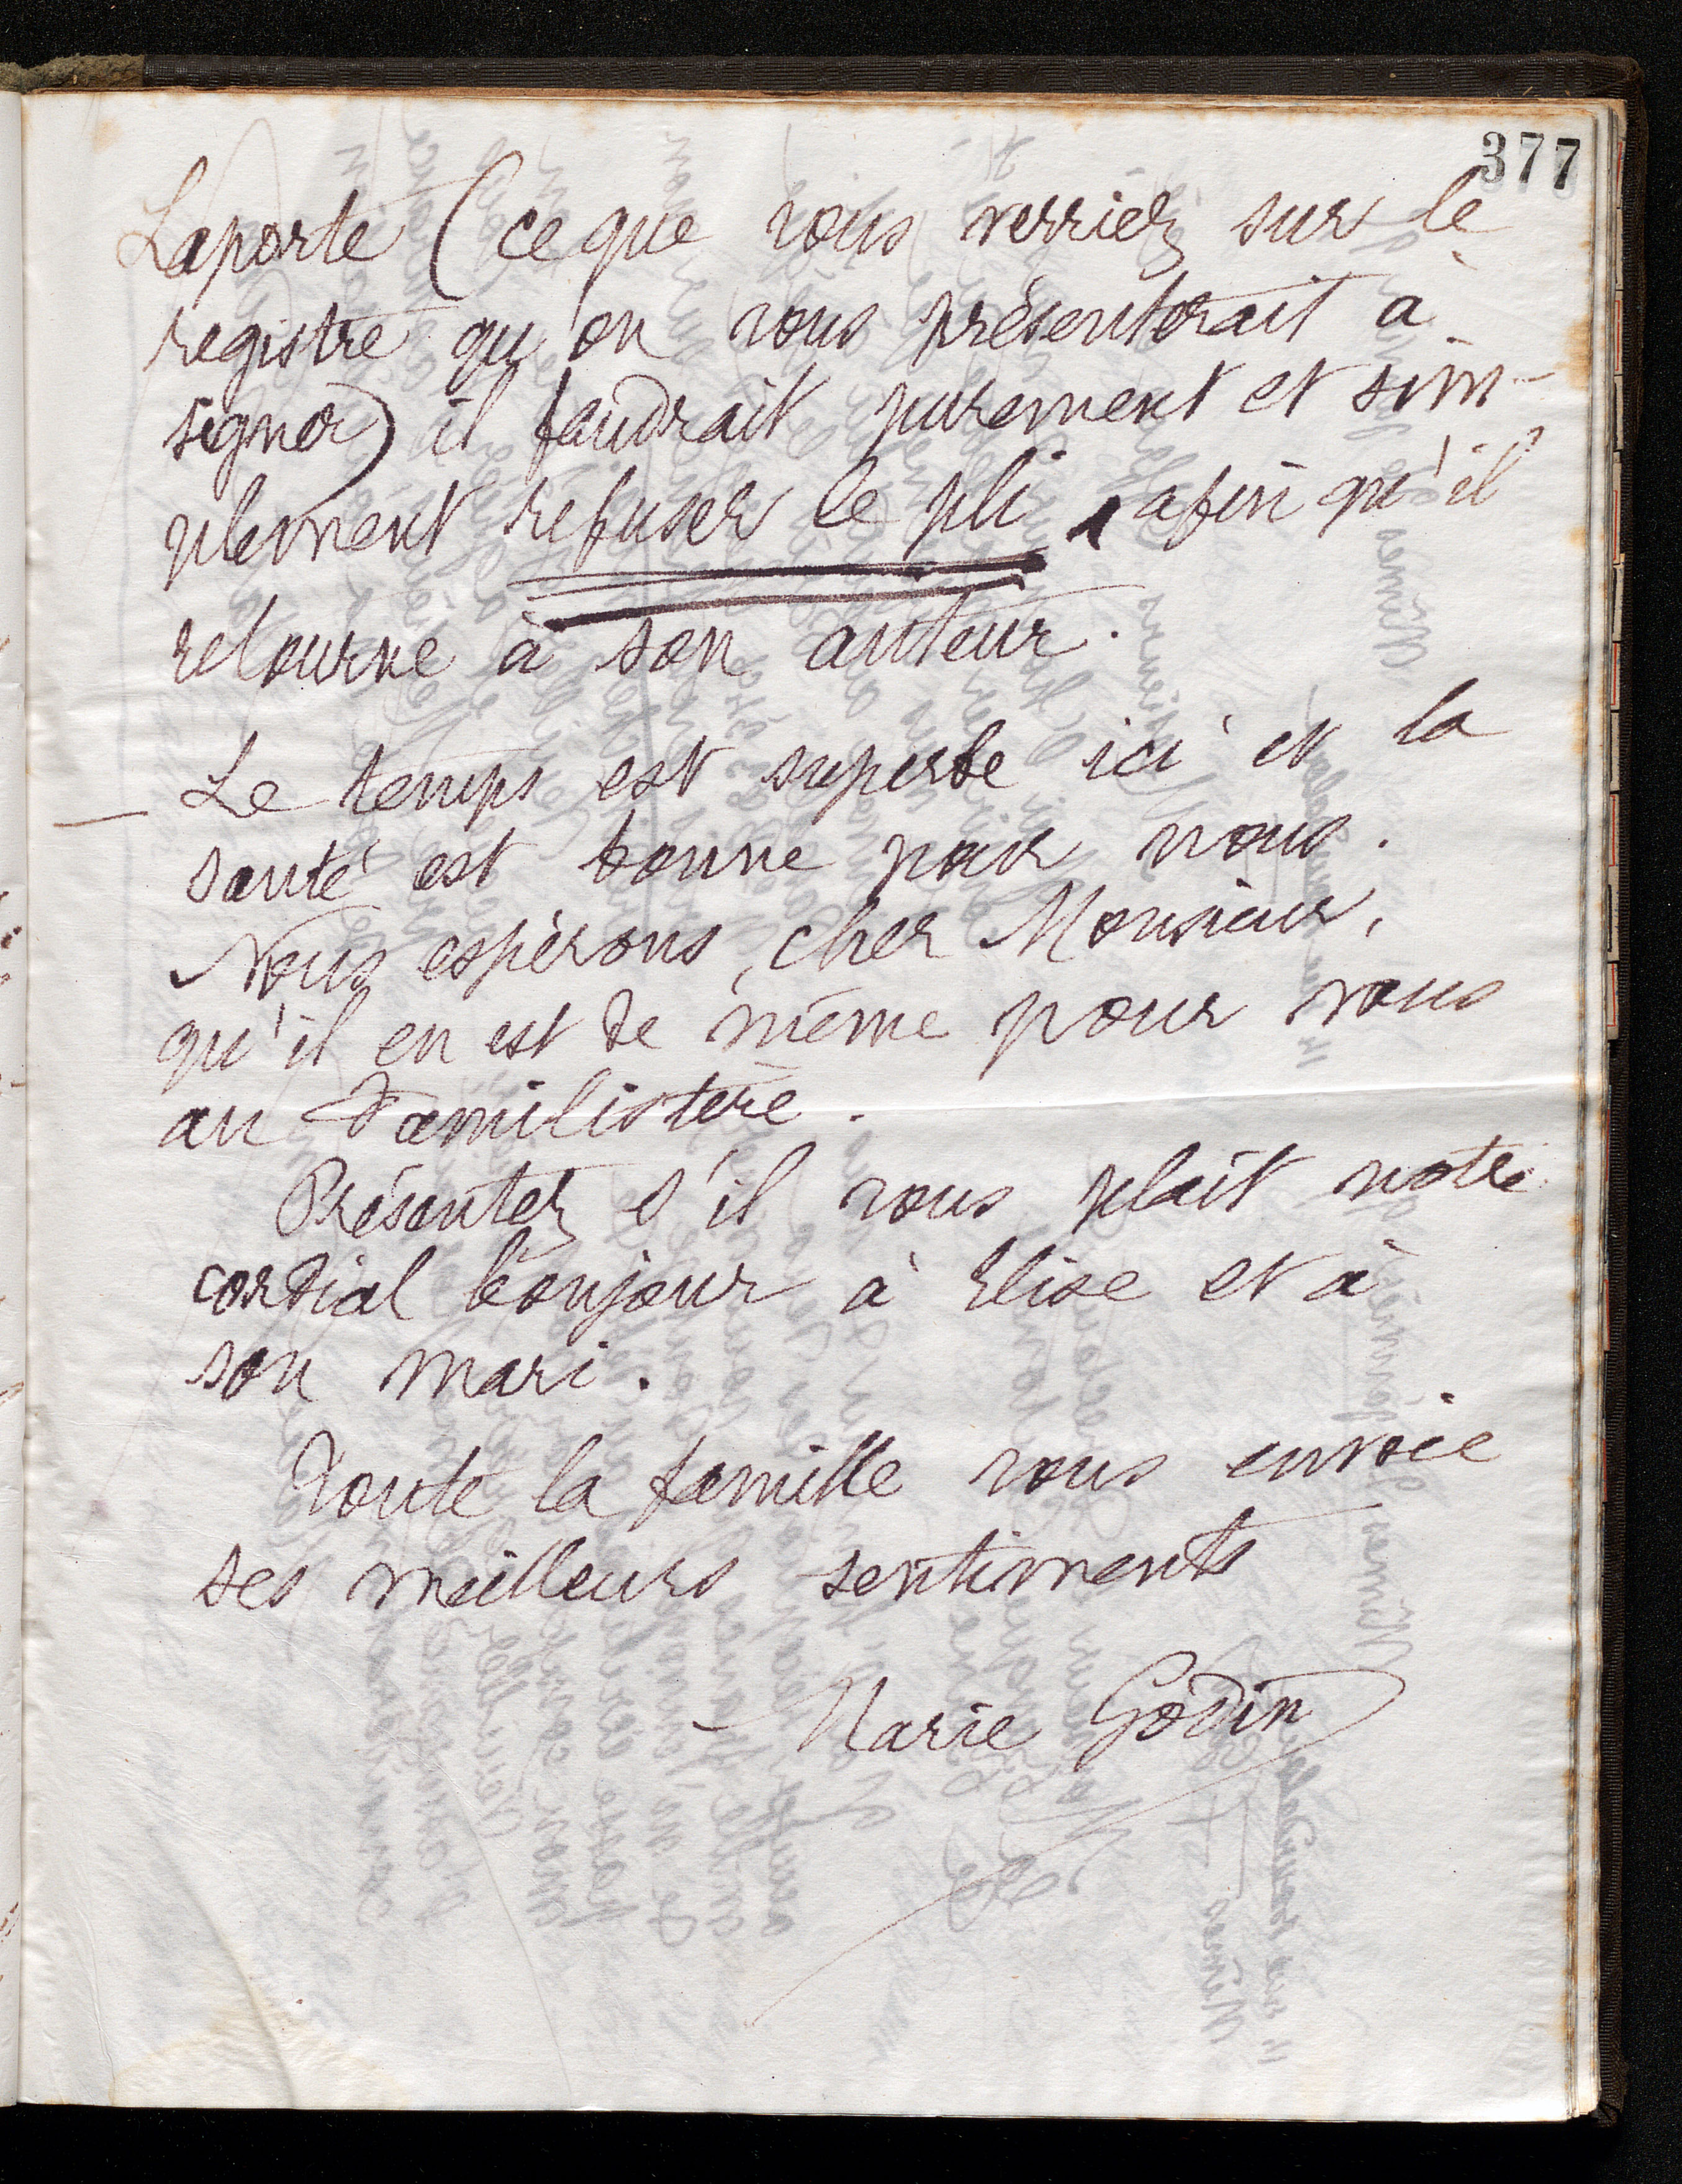 377
Laporte (ce que vous verriez sur le
registre qu'on vous présenterait à
signer) il faudrait purement et sim-
plement refuser le pli, afin qu'il
retourne à son auteur.
— Le temps est superbe ici et la
santé est bonne pour nous.
Nous espérons, cher Monsieur,
qu'il en est de même pour vous
au Familistère.
Présentez s'il vous plaît notre
cordial bonjour à Elise et à
son mari.
Toute la famille vous envoie
ses meilleurs sentiments
Marie Godin